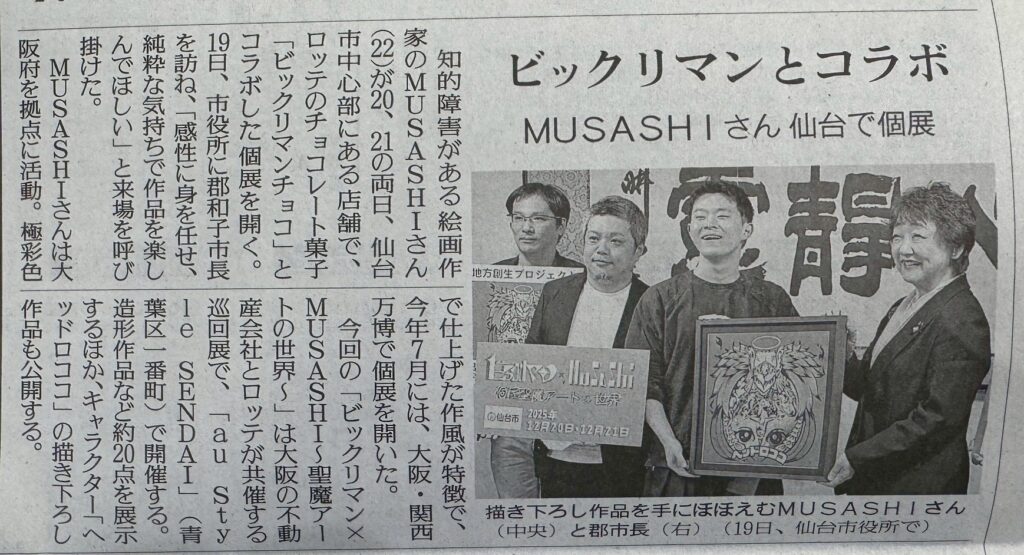 ビックリマンとコラボ
MUSASHIさん 仙台で個展
知的障害がある絵画作
家のMUSASHIさん
(22)が20、21の両日、仙台
市中心部にある店舗で、
ロッテのチョコレート菓子
「ビックリマンチョコ」と
コラボした個展を開く。
19日、市役所に郡和子市長
を訪ね、「感性に身を任せ、
純粋な気持ちで作品を楽し
んでほしい」と来場を呼び
掛けた。
MUSASHIさんは大
阪府を拠点に活動。極彩色
で仕上げた作風が特徴で、
今年7月には、大阪・関西
万博で個展を開いた。
今回の「ビックリマン×
MUSASHI～聖魔アー
トの世界～」は大阪の不動
産会社とロッテが共催する
巡回展で、「au Sty
le SENDAI」(青
葉区一番町)で開催する。
造形作品など約20点を展示
するほか、キャラクター「ヘ
ッドロココ」の描き下ろし
作品も公開する。
地方創生プロジェクト
MUSASHI
仙台市
2025年
12月20日・12月21日
ヘッドロココ
描き下ろし作品を手にほほえむMUSASHIさん
(中央)と郡市長(右)(19日、仙台市役所で)